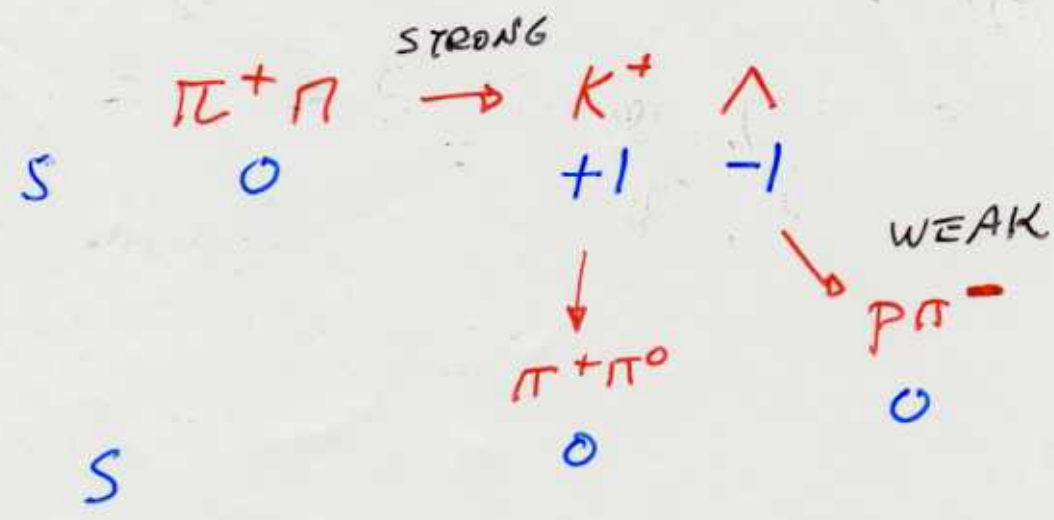 STRONG
π⁺ n → K⁺ Λ
S 0 +1 -1
WEAK
pπ⁻
π⁺π⁰
0
S 0